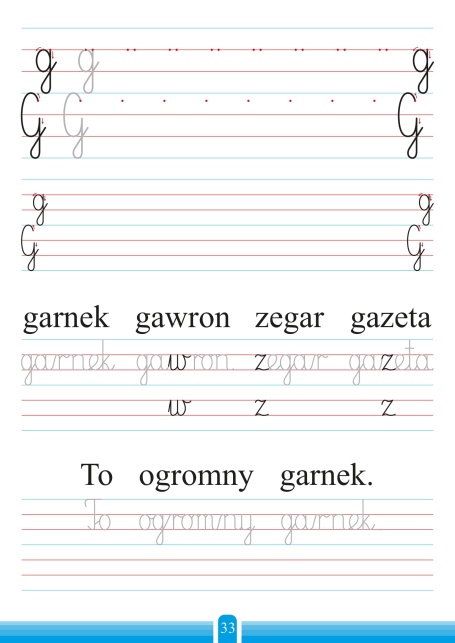 g g g
G G G
g g
G G
garnek gawron zegar gazeta
garnek gawron zegar gazeta
w z z
To ogromny garnek.
To ogromny garnek.
33